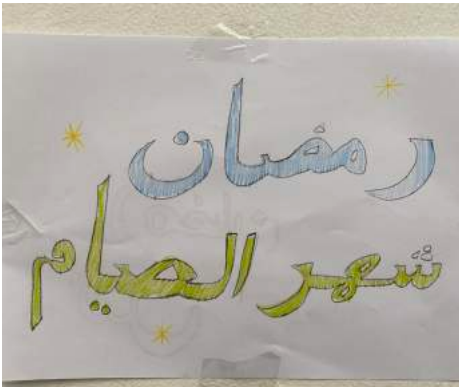 رمضان
شهر الصيام